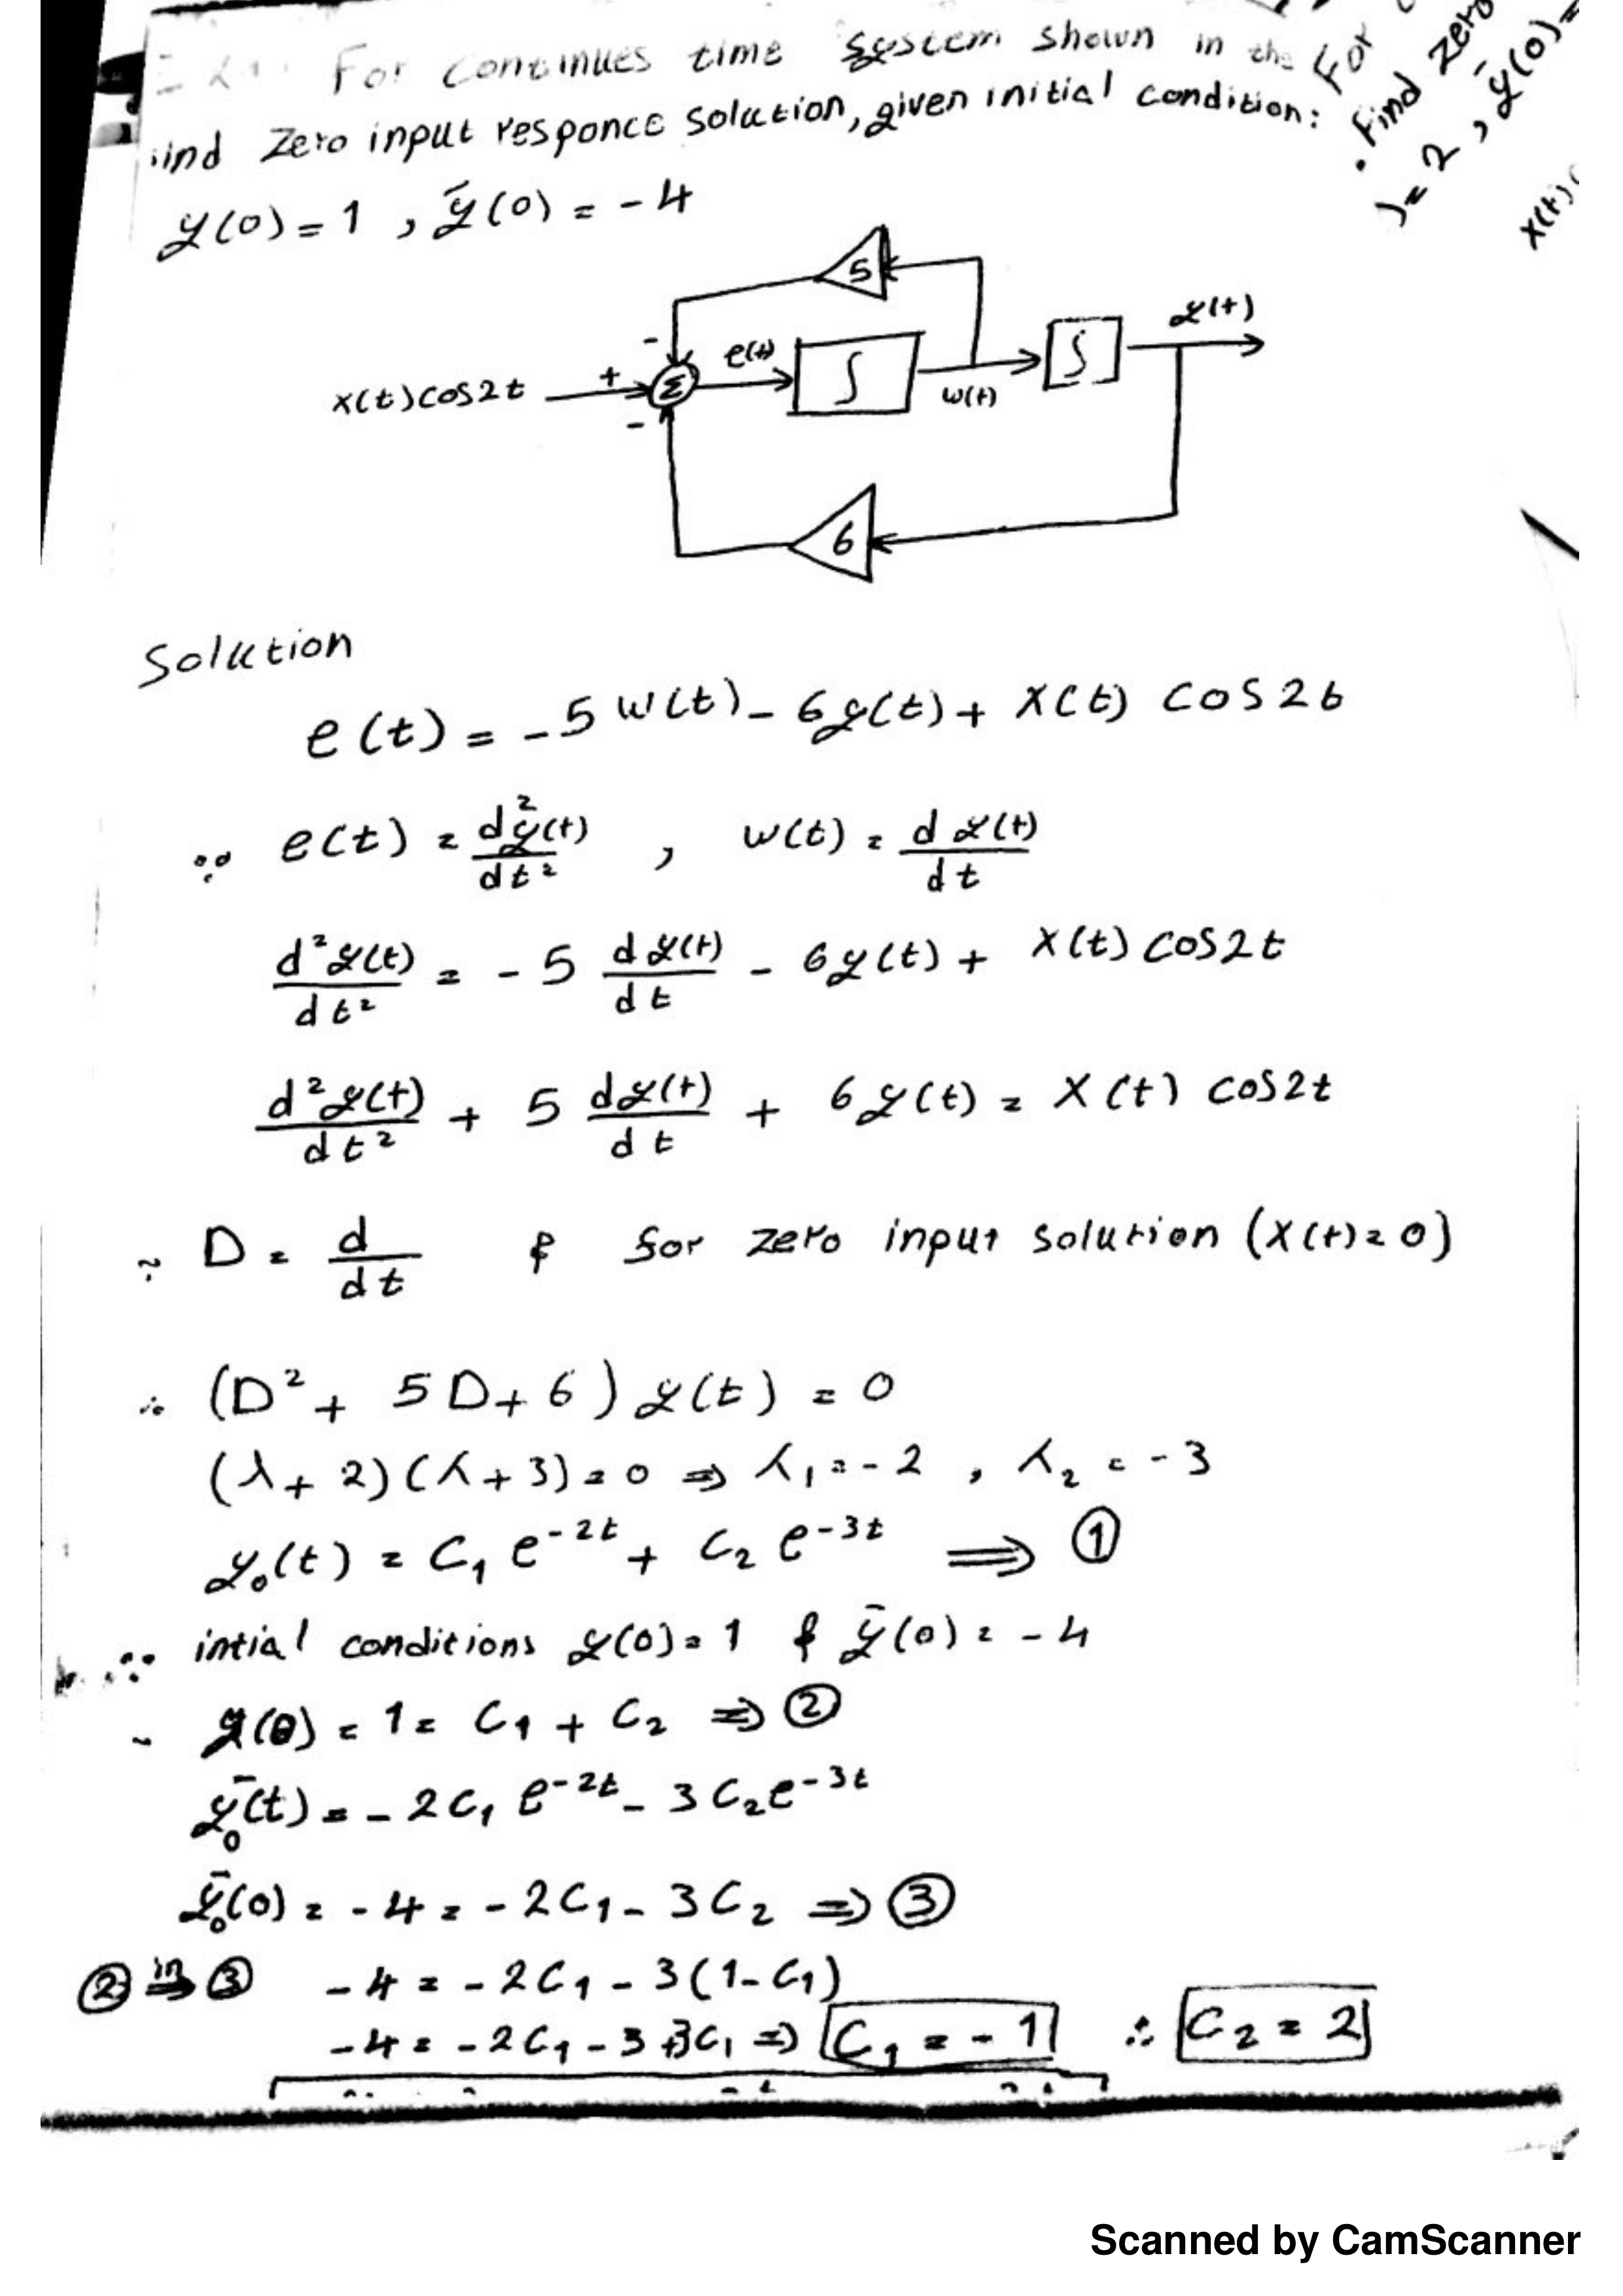 Ex1: For Continues time system shown in the
ind Zero input responce solution, given initial condition:
y(0) = 1 , ȳ(0) = - 4
For
. Find zero
)= 2 , ȳ(0)=
x(t)
5
y(t)
-
e(t)
∫
∫
x(t)cos2t
+
Σ
w(t)
-
6
Solution
e(t) = -5 w(t) - 6y(t) + x(t) cos2t
∵ e(t) = d²y(t)/dt² , w(t) = dy(t)/dt
d²y(t)/dt² = - 5 dy(t)/dt - 6y(t) + x(t) cos2t
d²y(t)/dt² + 5 dy(t)/dt + 6y(t) = x(t) cos2t
∵ D = d/dt & for zero input solution (x(t) = 0)
∴ (D² + 5D + 6) y(t) = 0
(λ + 2)(λ + 3) = 0 ⇒ λ₁ = - 2 , λ₂ = - 3
y₀(t) = C₁ e^-2t + C₂ e^-3t ⇒ ①
∵ intial conditions y(0) = 1 & ȳ(0) = - 4
y(0) = 1 = C₁ + C₂ ⇒ ②
ȳ₀(t) = - 2C₁ e^-2t - 3C₂e^-3t
ȳ₀(0) = - 4 = - 2C₁ - 3C₂ ⇒ ③
② in⇒ ③ -4 = - 2C₁ - 3(1-C₁)
-4 = - 2C₁ - 3 + 3C₁ ⇒ C₁ = - 1 ∴ C₂ = 2
Scanned by CamScanner